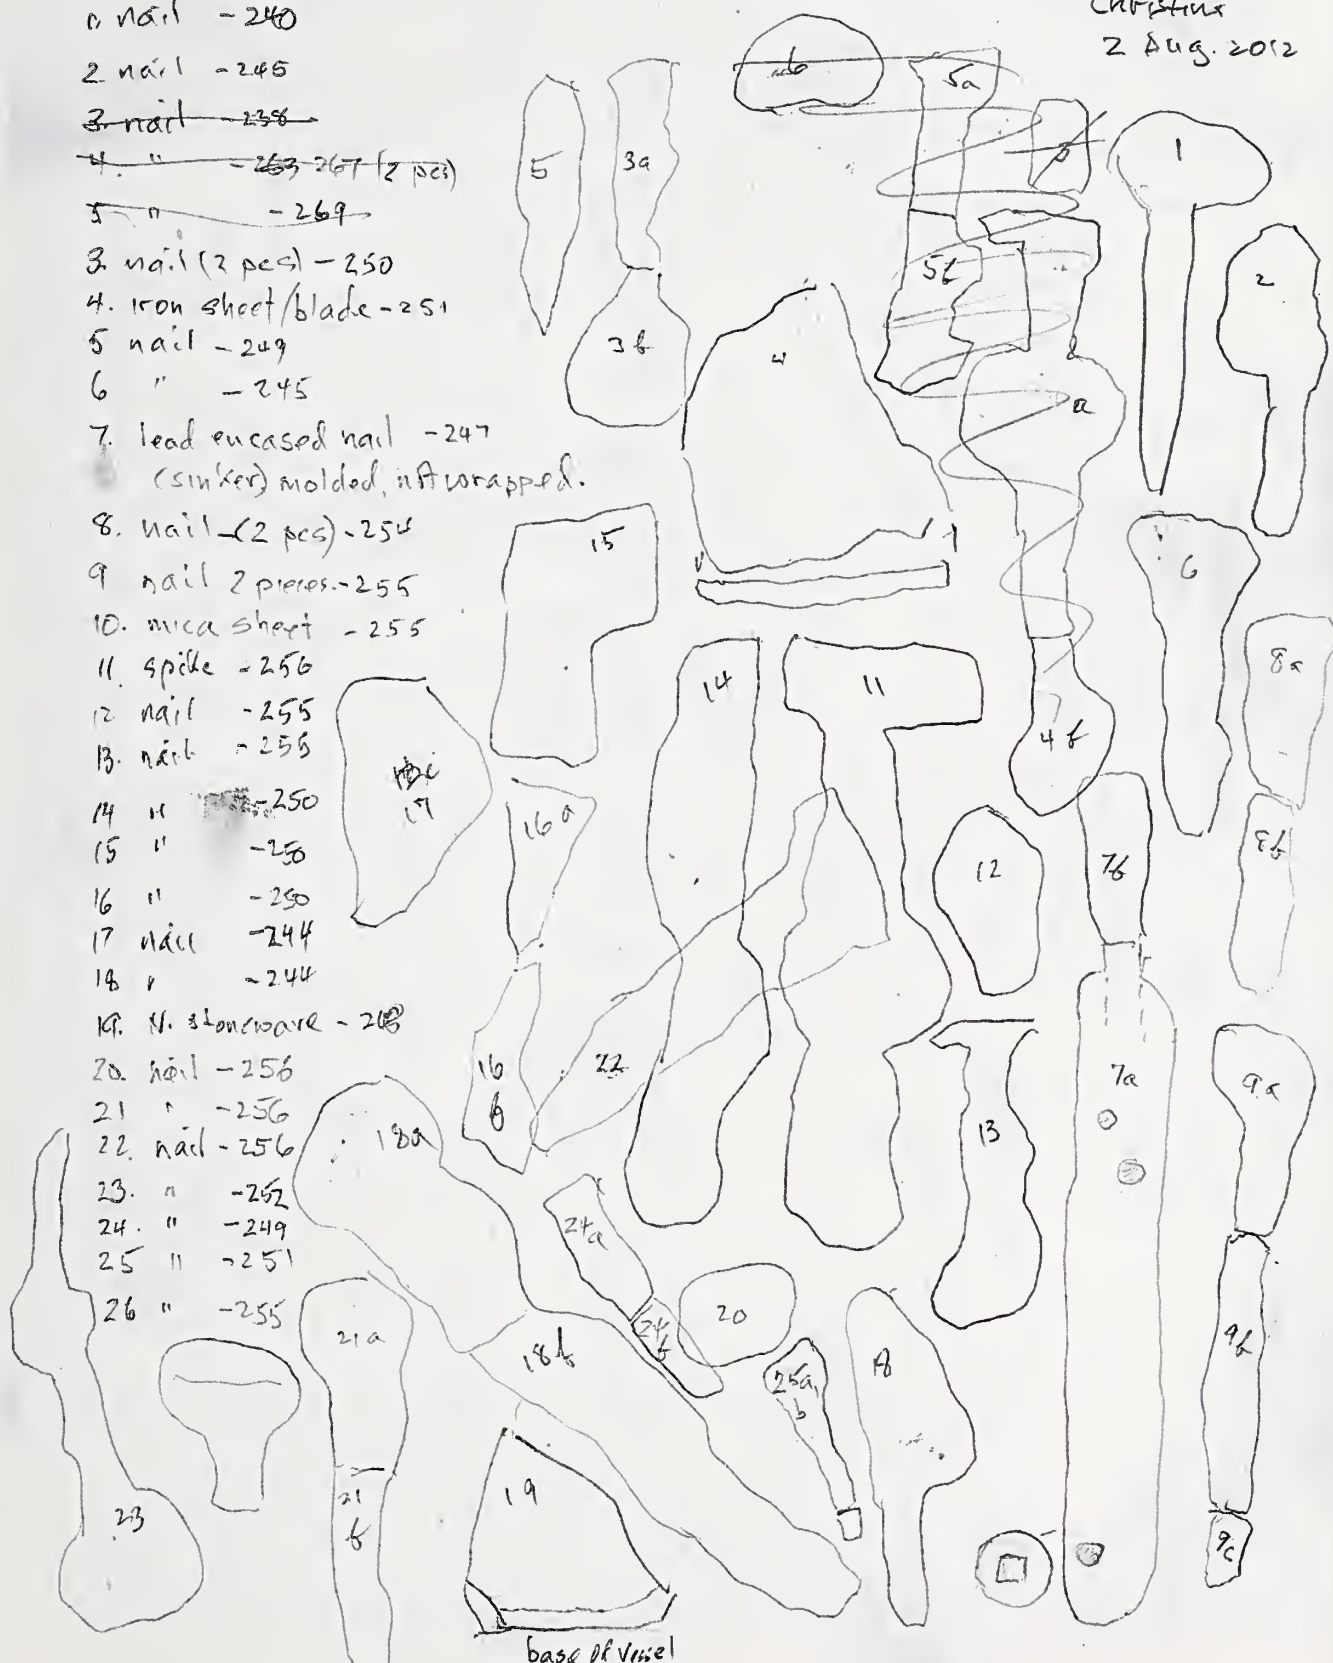 Christine
2 Aug. 2012
1. nail - 240
2 nail - 245
3. nail - 238
4. " - 263 267 (2 pcs)
5 " - 269
3. nail (2 pcs) - 250
4. iron sheet/blade - 251
5 nail - 249
6 " - 245
7. lead encased nail - 247
(sinker) molded, not wrapped.
8. nail - (2 pcs) - 254
9 nail 2 pieces. - 255
10. mica sheet - 255
11. spike - 256
12 nail - 255
13. nail - 255
14 " - 250
15 " - 250
16 " - 250
17 nail - 244
18 " - 244
19. N. stoneware -
20. nail - 256
21 " - 256
22. nail - 256
23. " - 252
24. " - 249
25 " - 251
26 " - 255
6
5a
5
3a
1
5b
2
3b
4
a
15
6
8a
14
11
4b
17
16a
12
7b
8b
16
b
22
7a
9a
18a
13
24a
20
24b
21a
18b
25a,
b
18
9b
19
23
21
b
9c
base of vessel